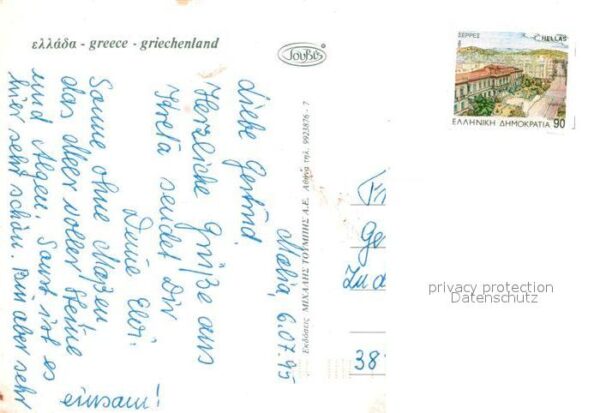 ελλάδα - greece - griechenland
JouBis
Malia, 6.07.95
Liebe Gertrud,
Herzliche Grüße aus
Kreta sendet Dir
Deine Elvi.
Sonne ohne Maßen
das Meer voller Steine
und Algen. Sonst ist es
hier sehr schön. Bin aber sehr
einsam!
Εκδόσεις ΜΙΧΑΛΗΣ ΤΟΥΜΠΗΣ Α.Ε. Αθήνα τηλ. 9923876 - 7
ΣΕΡΡΕΣ
HELLAS
ΕΛΛΗΝΙΚΗ ΔΗΜΟΚΡΑΤΙΑ 90
Fr
Ge
Zu d
38
privacy protection
Datenschutz